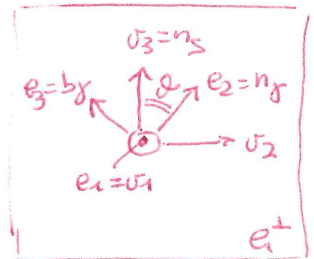 v₃=n_S
e₃=b_γ ϑ e₂=n_γ
v₂
e₁=v₁
e₁^⊥